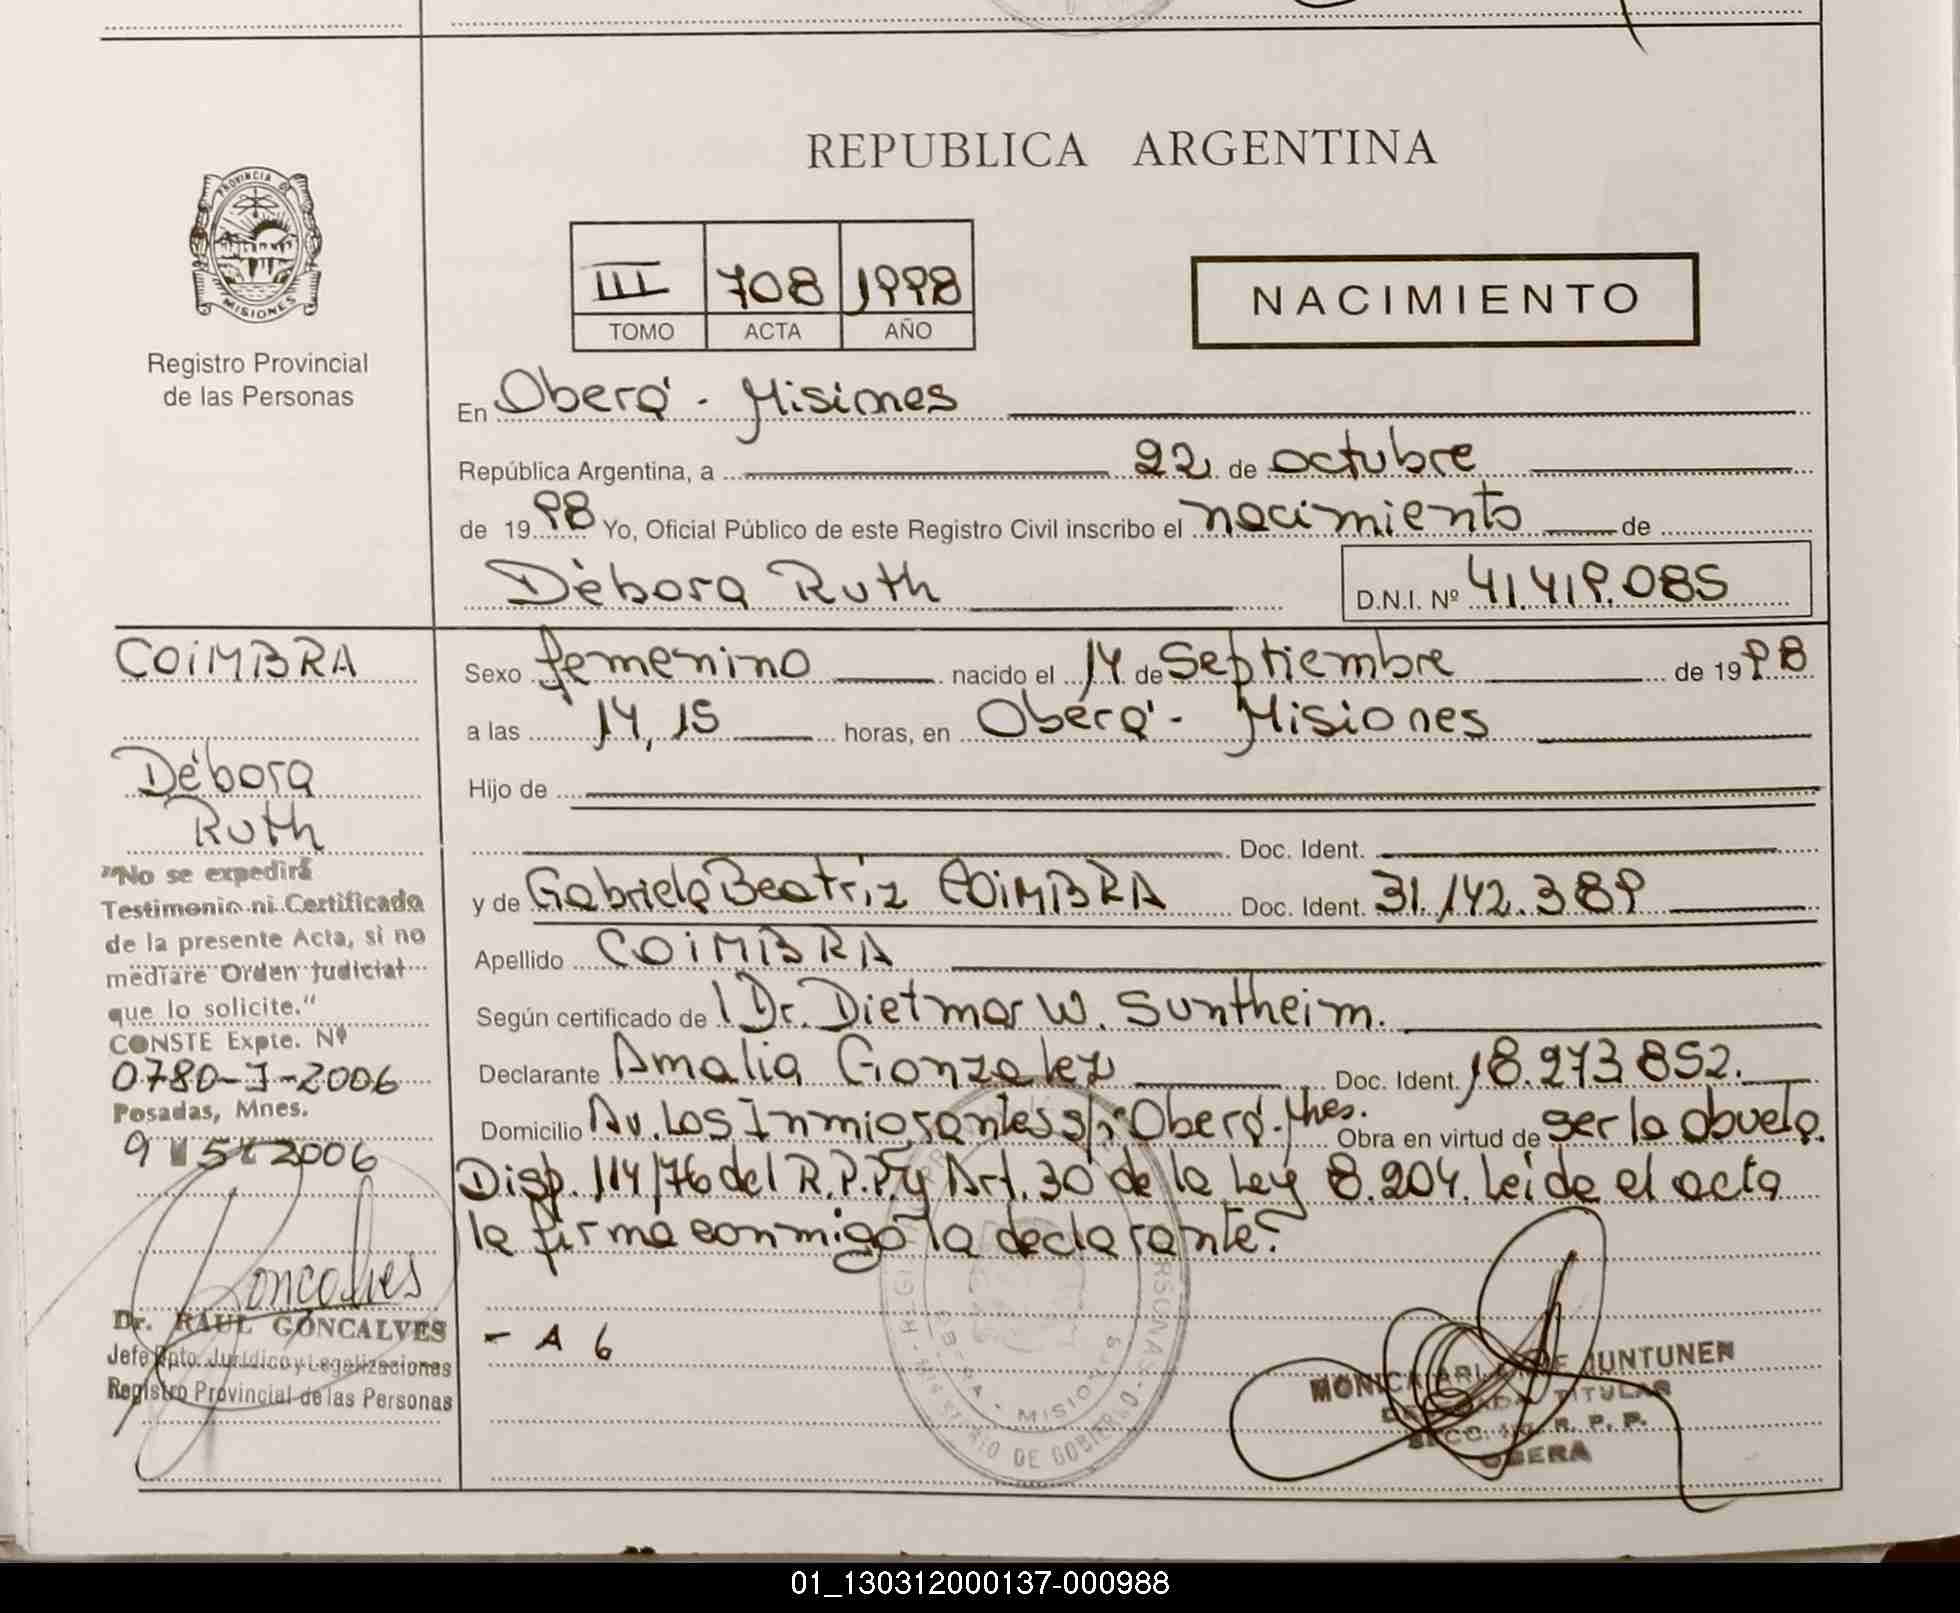 REPUBLICA ARGENTINA
PROVINCIA DE
MISIONES
Registro Provincial
de las Personas
III 708 1998
TOMO ACTA AÑO
NACIMIENTO
En Oberá - Misiones
República Argentina, a 22 de octubre
de 1998 Yo, Oficial Público de este Registro Civil inscribo el nacimiento de
Débora Ruth D.N.I. Nº 41.419.085
COIMBRA
Débora
Ruth
"No se expedirá
Testimonio ni Certificado
de la presente Acta, si no
mediare Orden Judicial
que lo solicite."
CONSTE Expte. Nº
0780-J-2006
Posadas, Mnes.
9 5 2006
Goncalves
Dr. RAUL GONCALVES
Jefe Dpto. Jurídico y Legalizaciones
Registro Provincial de las Personas
Sexo femenino nacido el 14 de Septiembre de 1998
a las 14,15 horas, en Oberá - Misiones
Hijo de
Doc. Ident.
y de Gabriela Beatriz COIMBRA Doc. Ident. 31.142.389
Apellido COIMBRA
Según certificado de Dr. Dietmar W. Suntheim.
Declarante Amalia Gonzalez Doc. Ident. 18.273852.
Domicilio Av. Los Inmigrantes s/n Oberá - Mnes. Obra en virtud de ser la abuela.
Disp. 114/76 del R.P.P. y Art. 30 de la Ley 8.204. Leída el acta
la firma conmigo la declarante.
- A 6
MISIONES
MINISTERIO DE GOBIERNO
MONICA DE JUNTUNEN
TITULAR
R. P. P.
OBERA
01_130312000137-000988